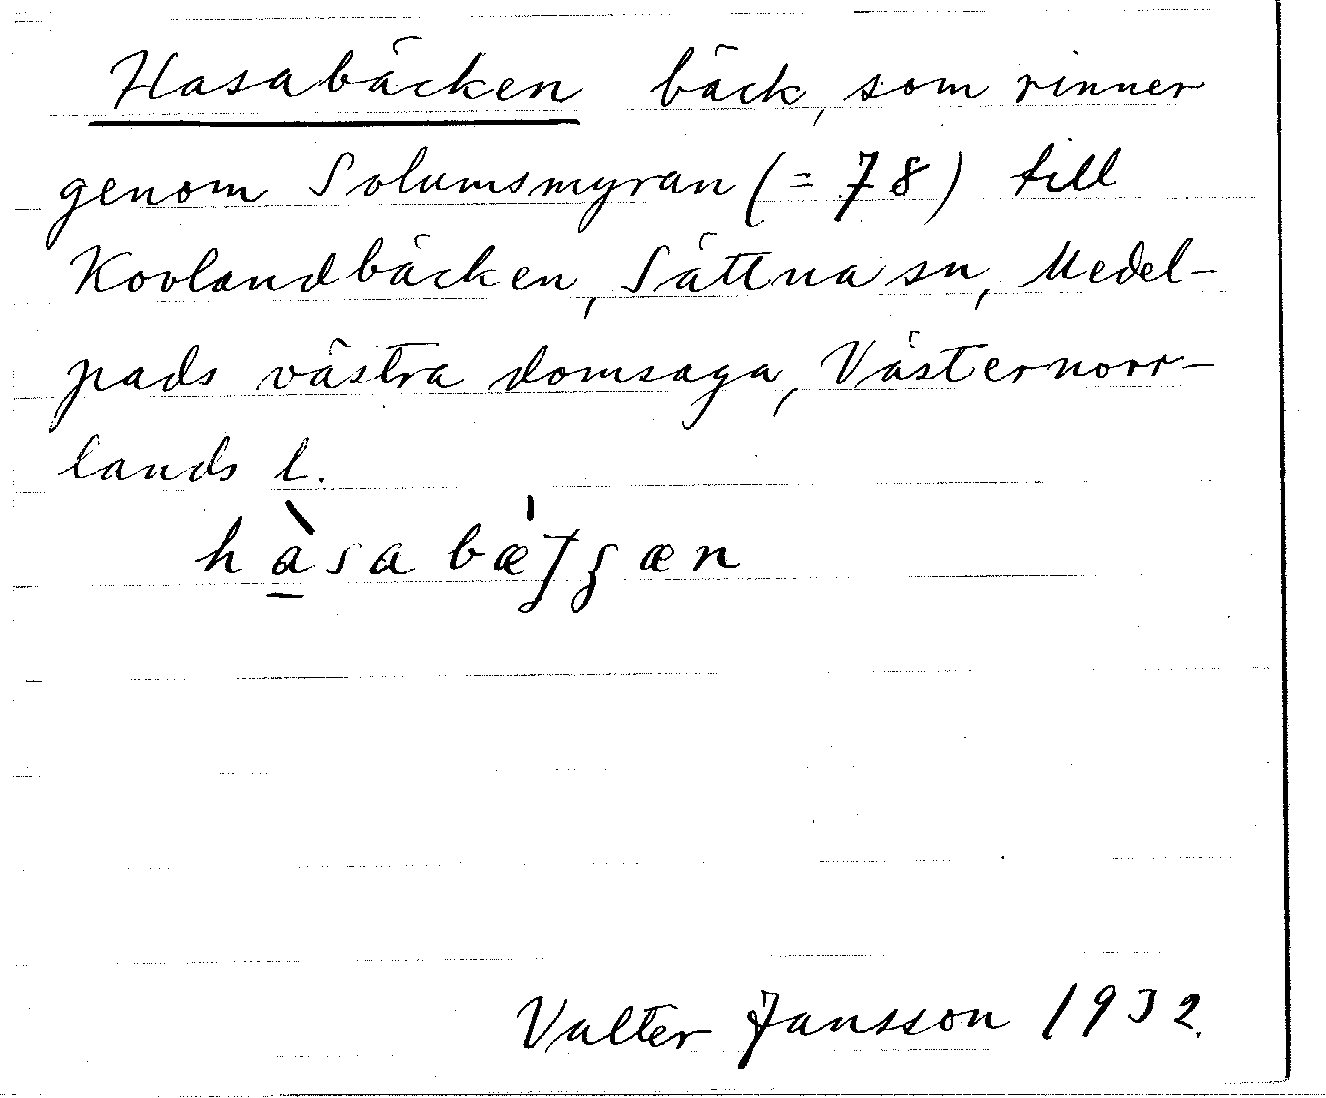 Hasabäcken bäck, som rinner
genom Solumsmyran (= 78) till
Kovlandbäcken, Sättna sn, Medel-
pads västra domsaga, Västernorr-
lands l.
Valter Jansson 1932.